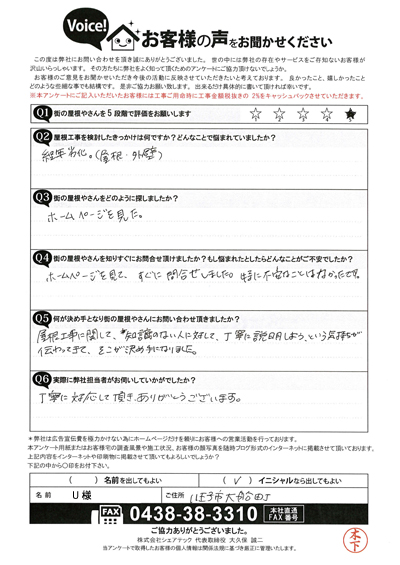 Voice!
お客様の声をお聞かせください
この度は弊社にお問い合わせを頂き誠にありがとうございました。世の中には弊社の存在やサービスをご存知ないお客様が
沢山いらっしゃいます。その方たちに弊社をよく知って頂くためのアンケートにご協力頂けないでしょうか。
お客様のご意見をお聞かせいただき今後の活動に反映させていただきたいと考えております。良かったこと、嬉しかったこと
どのような些細な事でも結構です。是非ご協力お願い致します。出来るだけ具体的に書いて頂ければ幸いです。
※本アンケートにご記入いただいたお客様には工事ご用命時に工事金額税抜きの2%をキャッシュバックさせていただきます。
Q1 街の屋根やさんを5段階で評価をお願いします ☆ ☆ ☆ ☆ ★
Q2 屋根工事を検討したきっかけは何ですか?どんなことで悩まれていましたか?
経年劣化。(屋根・外壁)
Q3 街の屋根やさんをどのように探しましたか?
ホームページを見た。
Q4 街の屋根やさんを知りすぐにお問合せ頂けましたか?もし悩まれたとしたらどんなことがご不安でしたか?
ホームページを見て、すぐに問合せしました。特に不安なことはなかったです。
Q5 何が決め手となり街の屋根やさんにお問い合わせ頂きましたか?
屋根工事に関して、知識のない人に対して、丁寧に説明しよう、という気持ちが
伝わってきて、そこが決め手になりました。
Q6 実際に弊社担当者がお伺いしていかがでしたか?
丁寧に対応して頂き、ありがとうございます。
*弊社は広告宣伝費を極力かけない為にホームページだけを頼りにお客様への営業活動を行っております。
本アンケート用紙またはお客様宅の調査風景や施工状況、お客様の顔写真を随時ブログ形式でのインターネットに掲載させて頂いております。
上記内容をインターネットや印刷物に掲載させて頂いてもよろしいでしょうか?
下記の中から〇印をお付け下さい。
( ) 名前を出してもよい (✓) イニシャルなら出してもよい
名前 U様 ご住所 八王子市大船町
FAX 0438-38-3310 本社直通
FAX番号
ご協力ありがとうございました。
株式会社シェアテック 代表取締役 大久保 誠二
当アンケートで取得したお客様の個人情報は関係法規に基づき厳正に管理いたします。
木下